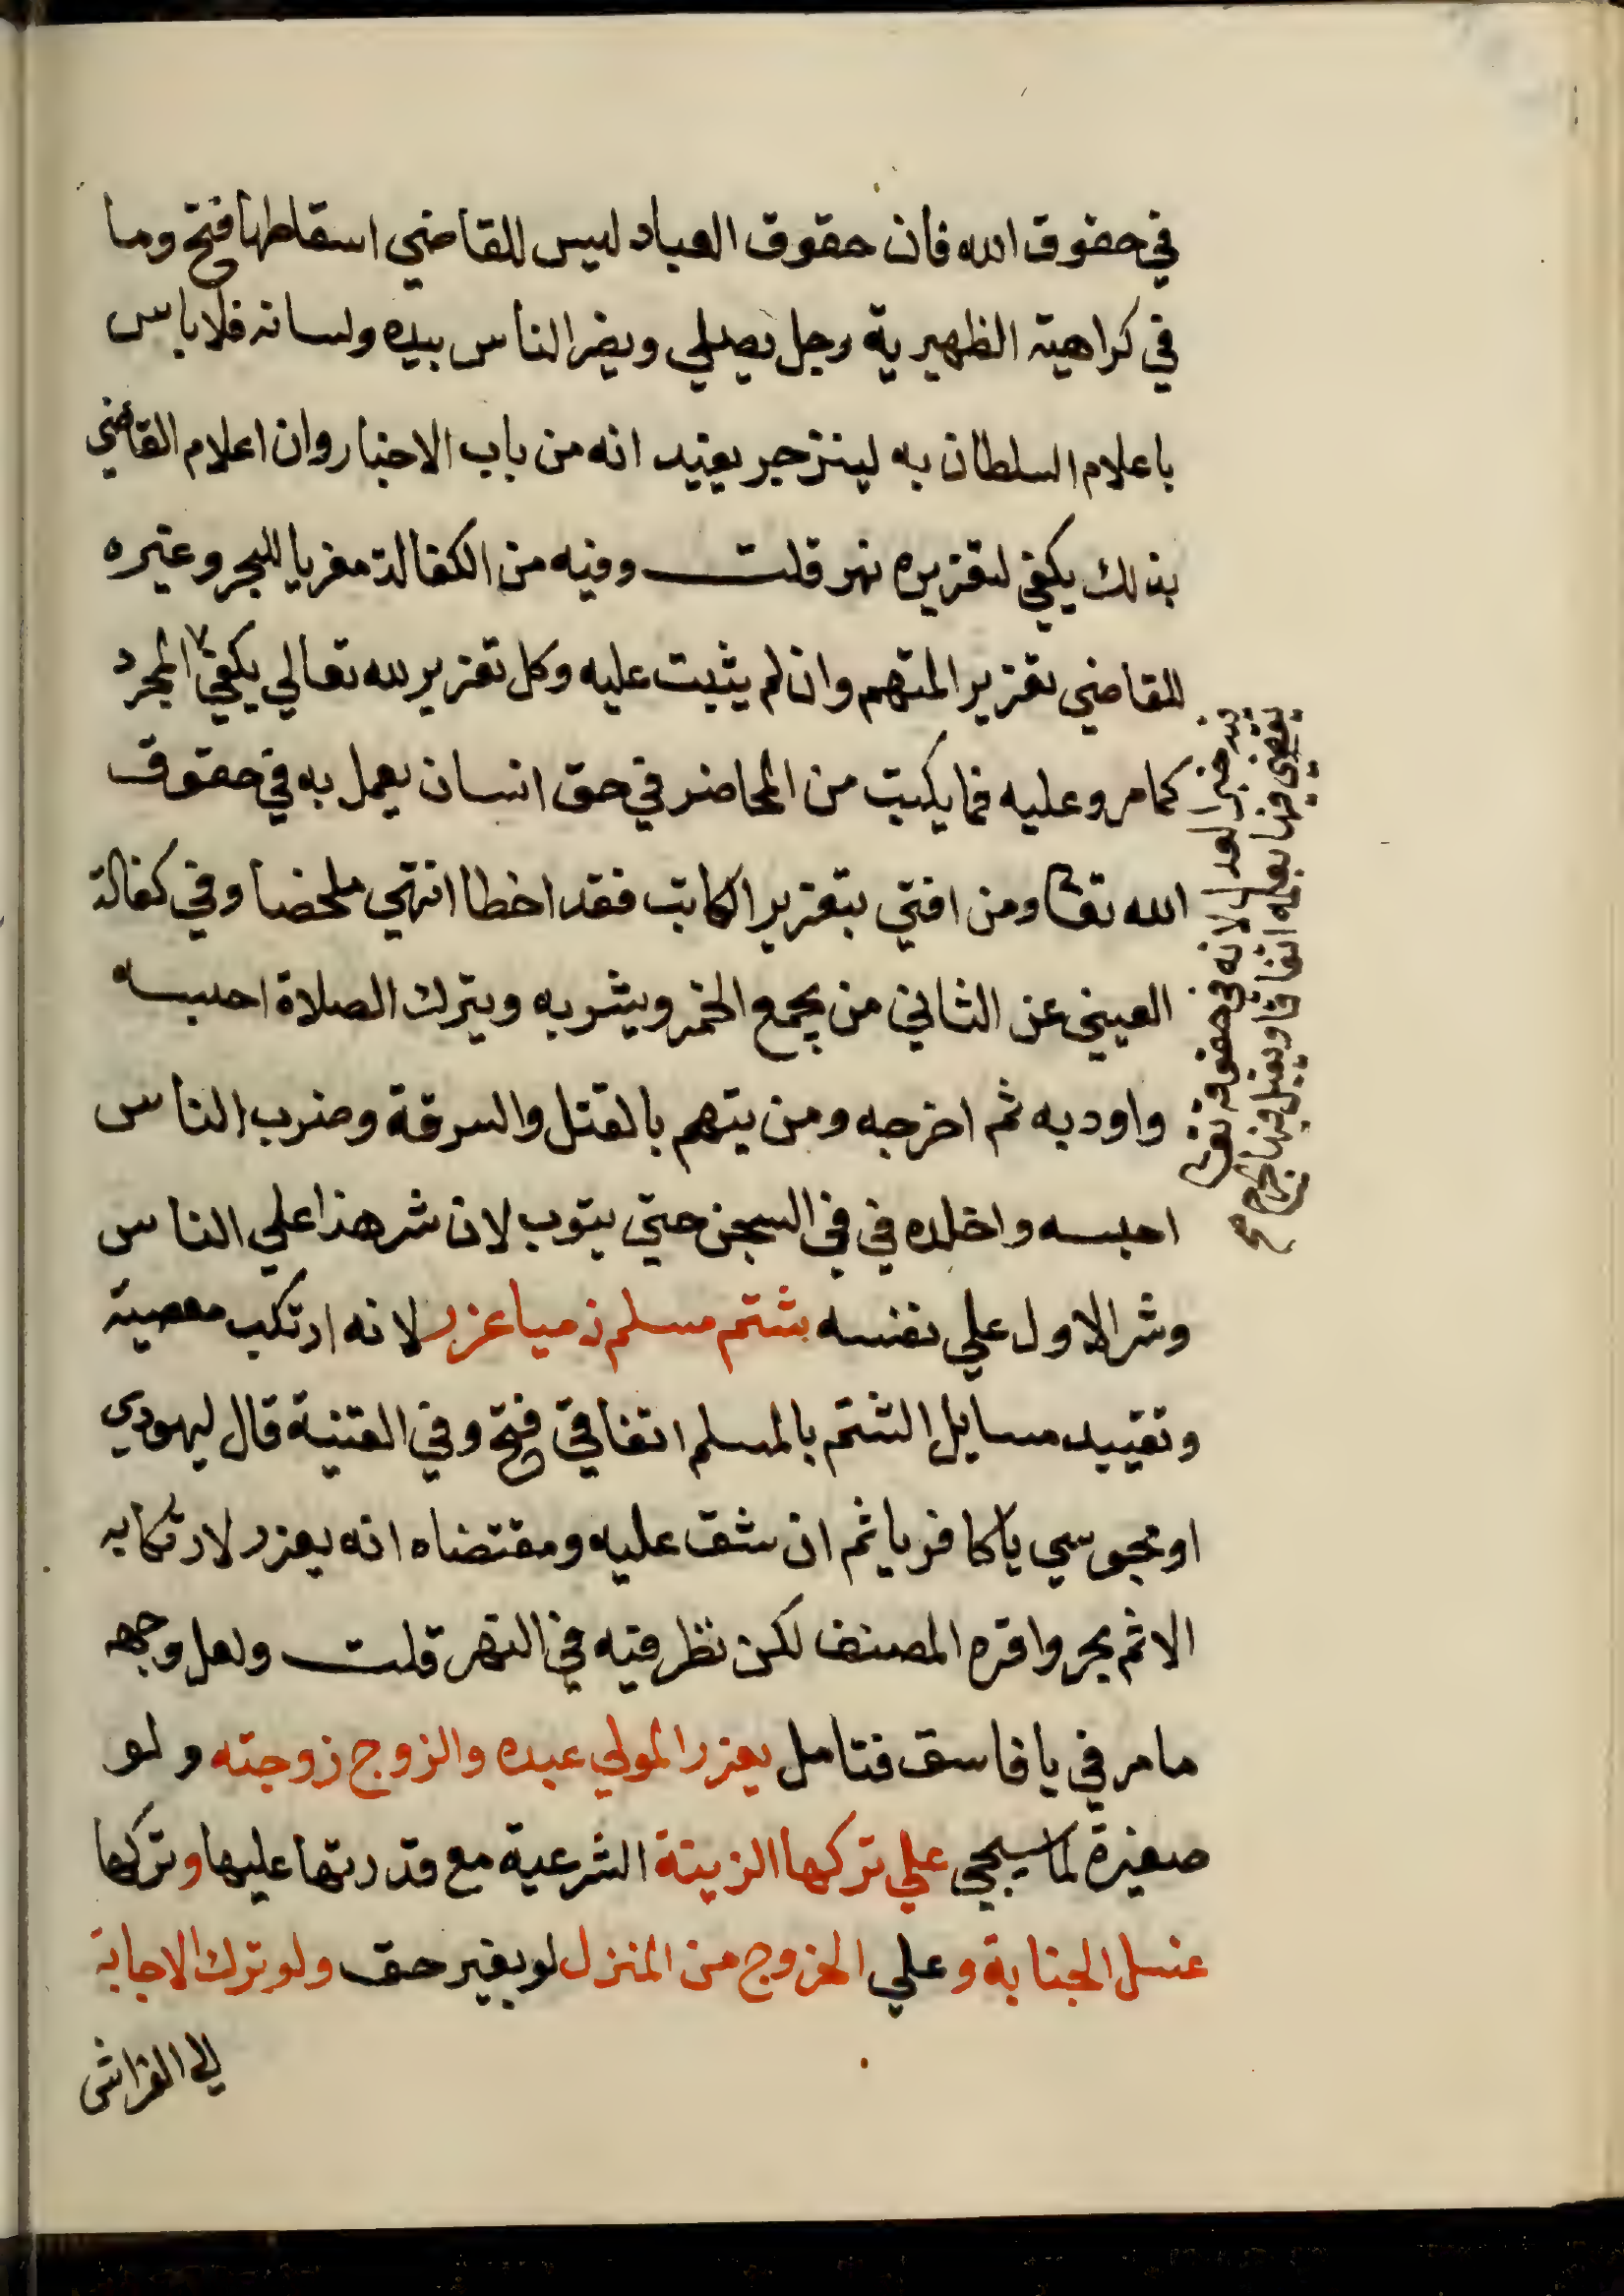 في حقوق الله فان حقوق العباد ليس للقاضي اسقاطها فتح وما
في كراهية الظهيرية رجل يصلي ويضر الناس بيده ولسانه فلا باس
باعلام السلطان به لينزجر يفيد انه من باب الاخبار وان اعلام القاضي
بذلك يكفي لتعزيره نهر قلت وفيه من الكفالة معزيا للبحر وغيره
للقاضي تعزير المتهم وان لم يثبت عليه وكل تعزير لله تعالي يكفي المجرد
كما مر وعليه فما يكتب من المحاضر في حق انسان يعمل به في حقوق
الله تعا ومن افتي بتعزير الكاتب فقد اخطا انتهي ملخصا وفي كفالة
العيني عن الثاني من يجمع الخمر ويشربه ويترك الصلاة احبسه
واودبه ثم اخرجه ومن يتهم بالقتل والسرقة وضرب الناس
احبسه واخلده في في السجن حتي يتوب لان شر هذا علي الناس
وشر الاول علي نفسه شتم مسلم ذميا عزر لانه ارتكب معصية
وتقييد مسايل الشتم بالمسلم اتفاقي فتح وفي القنية قال ليهودي
او مجوسي يا كافر ياثم ان شق عليه ومقتضاه انه يعزر لارتكابه
الاثم بحر واقره المصنف لكن نظر فيه في النهر قلت ولعل وجهه
ما مر في يا فاسق فتامل يعزر المولي عبده والزوج زوجته ولو
صغيرة لما سيجي علي تركها الزينة الشرعية مع قدرتها عليها وتركها
غسل الجنابة وعلي الخروج من المنزل لو بغير حق ولو ترك الاجابة
الي الفراش
فيه خبر العدل لانه في حقوقه تعا
يقضي فيها بعلمه اتفاقا ويقبل فيها الجرح
صح